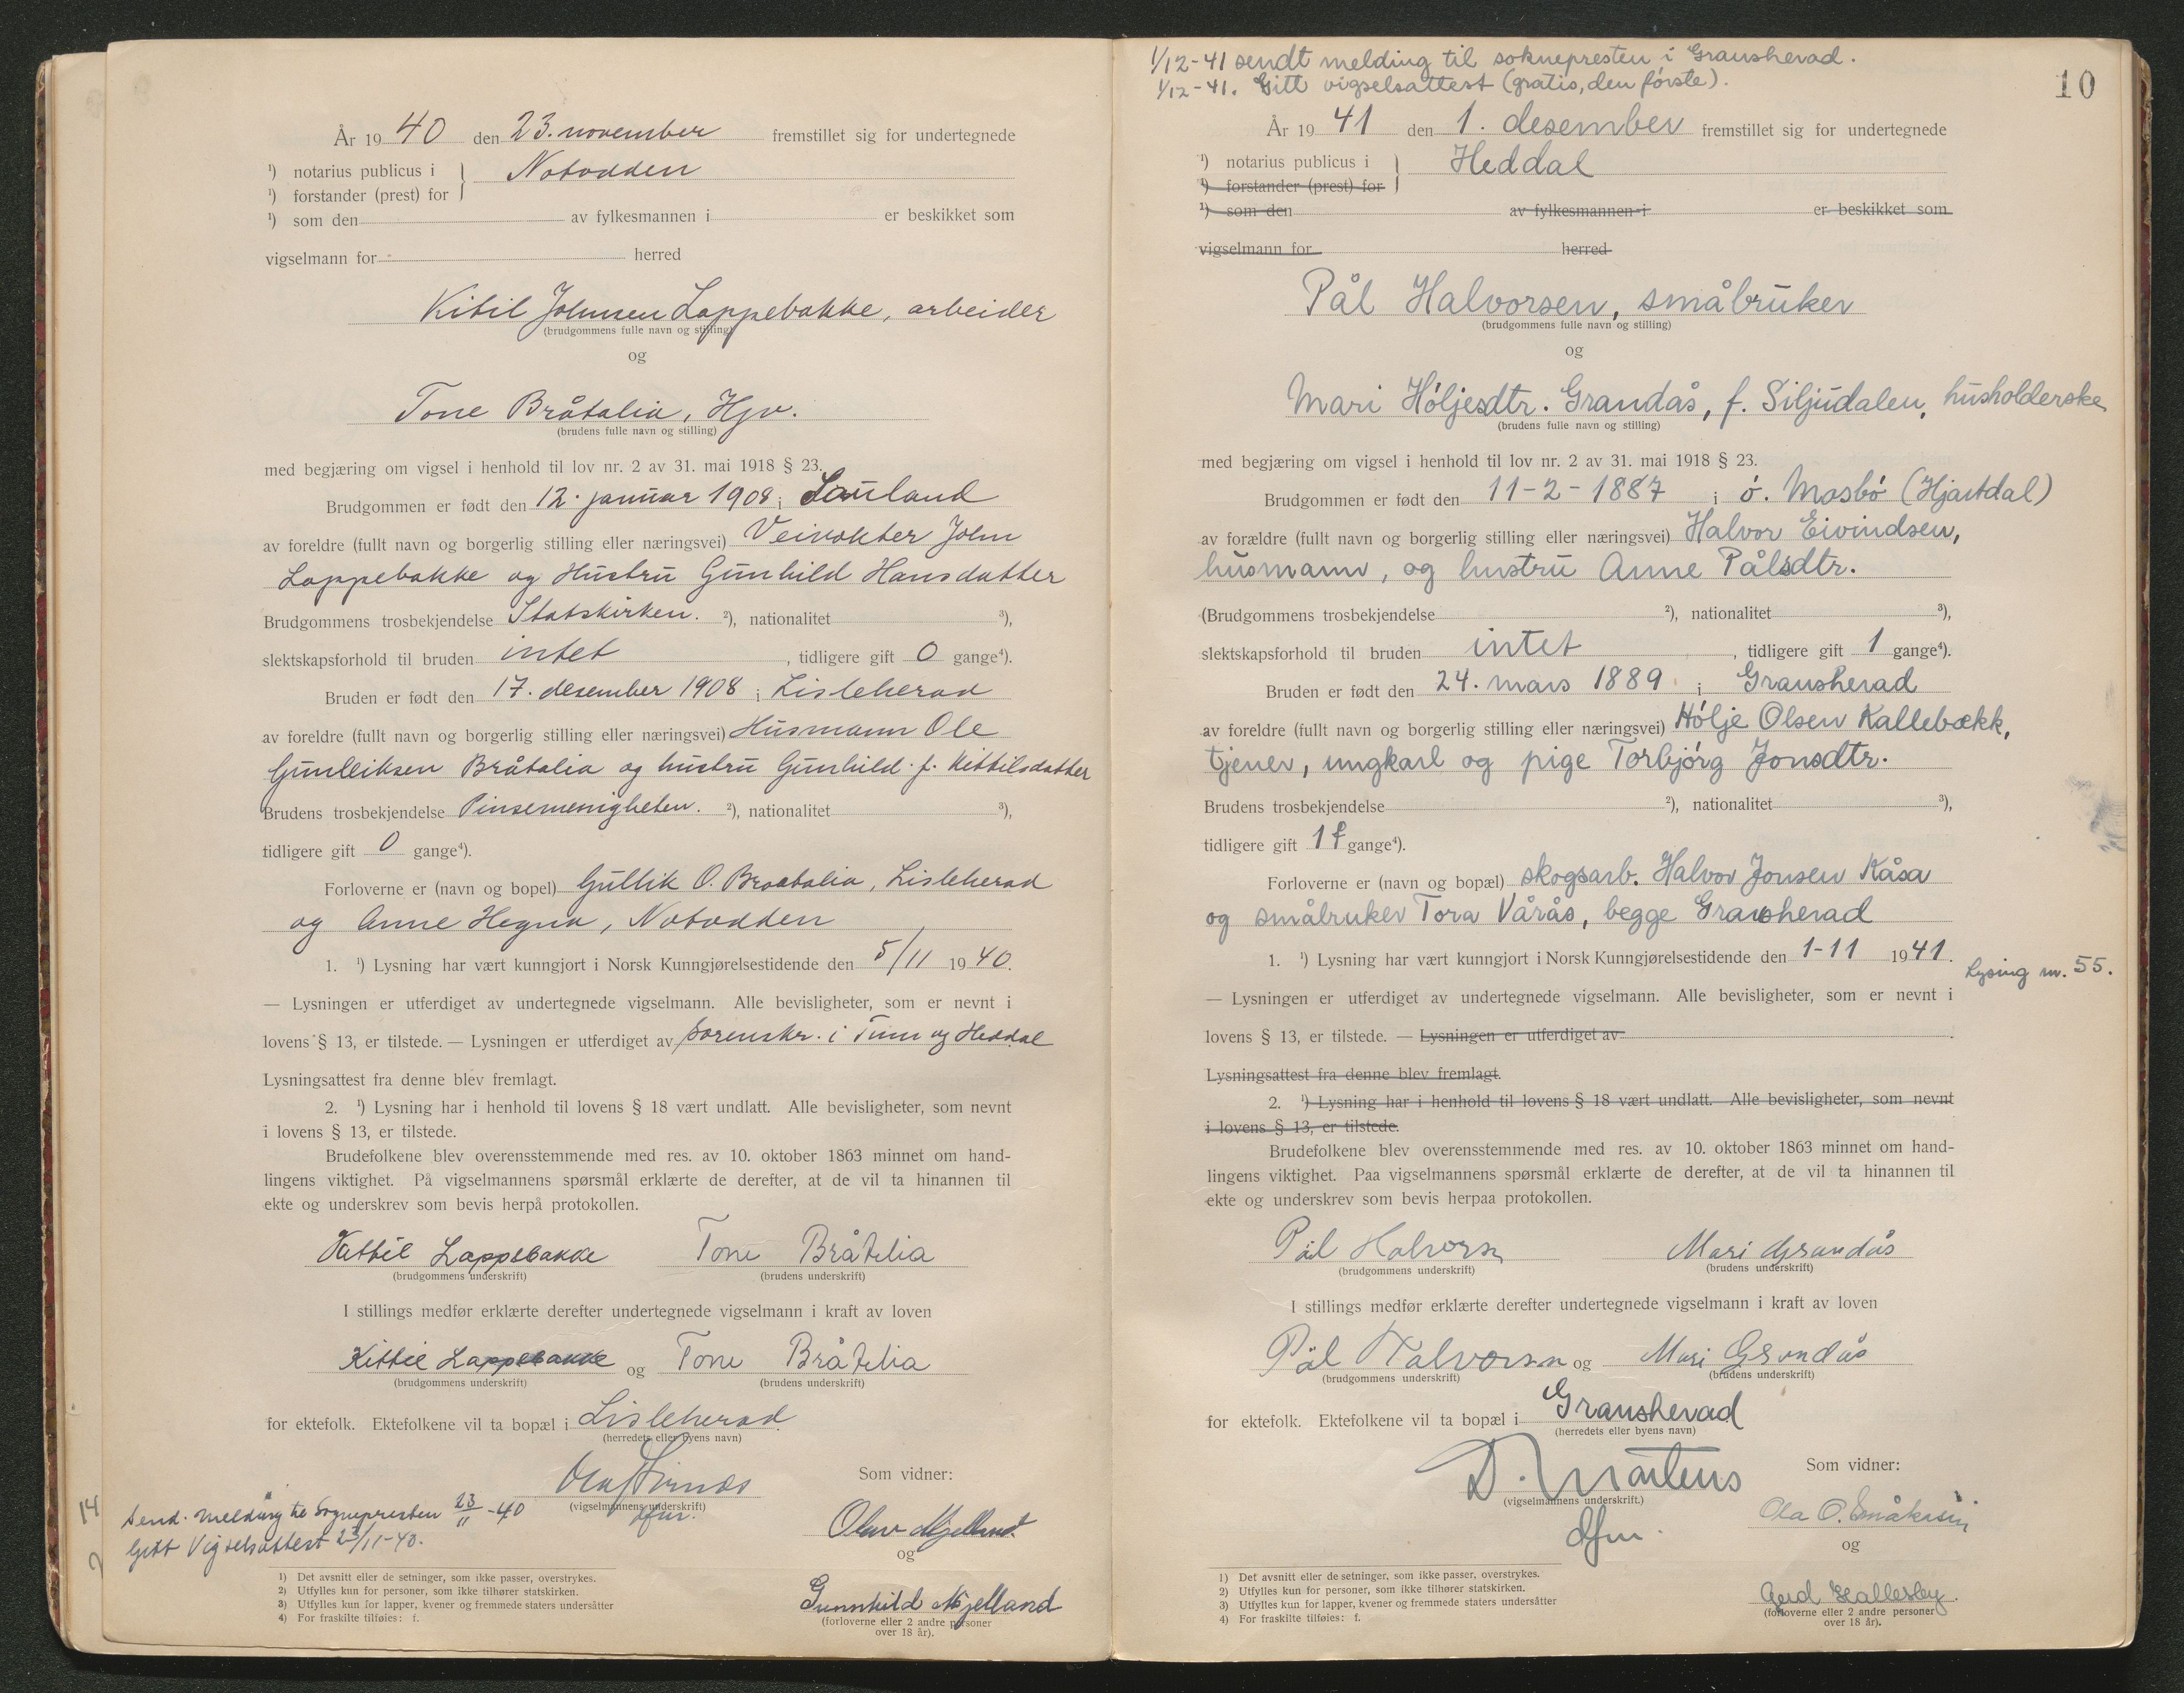 År 19 40 den 23. november fremstillet sig for undertegnede
¹) notarius publicus i } Notodden
¹) forstander (prest) for
¹) som den av fylkesmannen i er beskikket som
vigselmann for herred
Kitil Johnsen Loppebakke, arbeider
(brudgommens fulle navn og stilling)
og
Tone Bråtalia, Hjv.
(brudens fulle navn og stilling)
med begjæring om vigsel i henhold til lov nr. 2 av 31. mai 1918 § 23.
Brudgommen er født den 12. januar 1908 i Sauland
av foreldre (fullt navn og borgerlig stilling eller næringsvei) Veivokter John
Loppebakke og Hustru Gunhild Hansdatter
Brudgommens trosbekjendelse Statskirken. ²), nationalitet ³),
slektskapsforhold til bruden intet , tidligere gift 0 gange⁴).
Bruden er født den 17. desember 1908 i Lisleherad
av foreldre (fullt navn og borgerlig stilling eller næringsvei) Husmann Ole
Gunleiksen Bråtalia og hustru Gunhild f. Kittilsdatter
Brudens trosbekjendelse Pinsemenigheten. ²), nationalitet ³),
tidligere gift 0 gange⁴).
Forloverne er (navn og bopel) Gullik O. Braatalia, Lisleherad
og Anne Hegna, Notodden
1. ¹) Lysning har vært kunngjort i Norsk Kunngjørelsestidende den 5/11 19 40.
— Lysningen er utferdiget av undertegnede vigselmann. Alle bevisligheter, som er nevnt i
lovens § 13, er tilstede. — Lysningen er utferdiget av Sorenskr. i Tinn og Heddal
Lysningsattest fra denne blev fremlagt.
2. ¹) Lysning har i henhold til lovens § 18 vært undlatt. Alle bevisligheter, som nevnt
i lovens § 13, er tilstede.
Brudefolkene blev overensstemmende med res. av 10. oktober 1863 minnet om hand-
lingens viktighet. På vigselmannens spørsmål erklærte de derefter, at de vil ta hinannen til
ekte og underskrev som bevis herpå protokollen.
Kittil Loppebakke Tone Bråtelia
(brudgommens underskrift) (brudens underskrift)
I stillings medfør erklærte derefter undertegnede vigselmann i kraft av loven
Kittil Loppebakke og Tone Bråtelia
(brudgommens underskrift) (brudens underskrift)
for ektefolk. Ektefolkene vil ta bopæl i Lisleherad
(herredets eller byens navn)
Som vidner:
(vigselmannens underskrift)
dfm.
Send. melding til Sogneprester 23/11-40
Gitt Vigselsattest 23/11-40.
Olav Mjelland
og
Gunnhild Mjelland
(forloverne eller 2 andre personer
over 18 år).
1) Det avsnitt eller de setninger, som ikke passer, overstrykes.
2) Utfylles kun for personer, som ikke tilhører statskirken.
3) Utfylles kun for lapper, kvener og fremmede staters undersåtter
4) For fraskilte tilføies: f.
14
2
1/12-41 sendt melding til soknepresten i Gransherad.
1/12-41. Gitt vigselsattest (gratis, den første).
10
År 19 41 den 1. desember fremstillet sig for undertegnede
¹) notarius publicus i } Heddal
¹) forstander (prest) for
¹) som den av fylkesmannen i er beskikket som
vigselmann for herred
Pål Halvorsen, småbruker
(brudgommens fulle navn og stilling)
og
Mari Höljesdtr. Grandås, f. Siljudalen, husholderske
(brudens fulle navn og stilling)
med begjæring om vigsel i henhold til lov nr. 2 av 31. mai 1918 § 23.
Brudgommen er født den 11-2-1887 i ö. Mosbö (Hjartdal)
av forældre (fullt navn og borgerlig stilling eller næringsvei) Halvor Eivindsen,
husmann, og hustru Anne Pålsdtr.
(Brudgommens trosbekjendelse ²), nationalitet ³),
slektskapsforhold til bruden intet , tidligere gift 1 gange⁴).
Bruden er født den 24. mars 1889 i Gransherad
av foreldre (fullt navn og borgerlig stilling eller næringsvei) Hölje Olsen Kallebækk,
tjener, ungkarl og pige Torbjörg Jonsdtr.
Brudens trosbekjendelse ²), nationalitet ³),
tidligere gift 1 f gange⁴).
Forloverne er (navn og bopæl) skogsarb. Halvor Jonsen Kåsa
og småbruker Tora Vårås, begge Gransherad
1. ¹) Lysning har vært kunngjort i Norsk Kunngjørelsestidende den 1-11 1941.
Lysing nr. 55.
— Lysningen er utferdiget av undertegnede vigselmann. Alle bevisligheter, som er nevnt i
lovens § 13, er tilstede. — Lysningen er utferdiget av
Lysningsattest fra denne blev fremlagt.
2. ¹) Lysning har i henhold til lovens § 18 vært undlatt. Alle bevisligheter, som nevnt
i lovens § 13, er tilstede.
Brudefolkene blev overensstemmende med res. av 10. oktober 1863 minnet om hand-
lingens viktighet. Paa vigselmannens spørsmål erklærte de derefter, at de vil ta hinannen til
ekte og underskrev som bevis herpaa protokollen.
Pål Halvorsn Mari Grandås
(brudgommens underskrift) (brudens underskrift)
I stillings medfør erklærte derefter undertegnede vigselmann i kraft av loven
Pål Halvorsn og Mari Grandås
(brudgommens underskrift) (brudens underskrift)
for ektefolk. Ektefolkene vil ta bopæl i Gransherad
(herredets eller byens navn)
D. Martens
(vigselmannens underskrift.)
dfm.
Som vidner:
Ola O.
og
Gerd Hallesby
(forloverne eller 2 andre personer
over 18 år).
1) Det avsnitt eller de setninger, som ikke passer, overstrykes.
2) Utfylles kun for personer, som ikke tilhører statskirken.
3) Utfylles kun for lapper, kvener og fremmede staters undersåtter
4) For fraskilte tilføies: f.